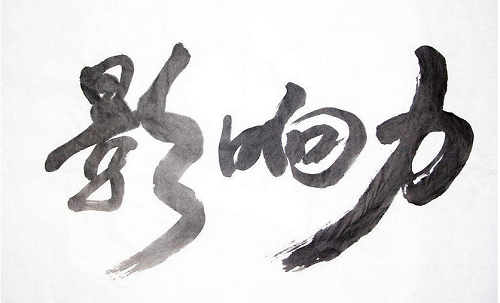 影响力